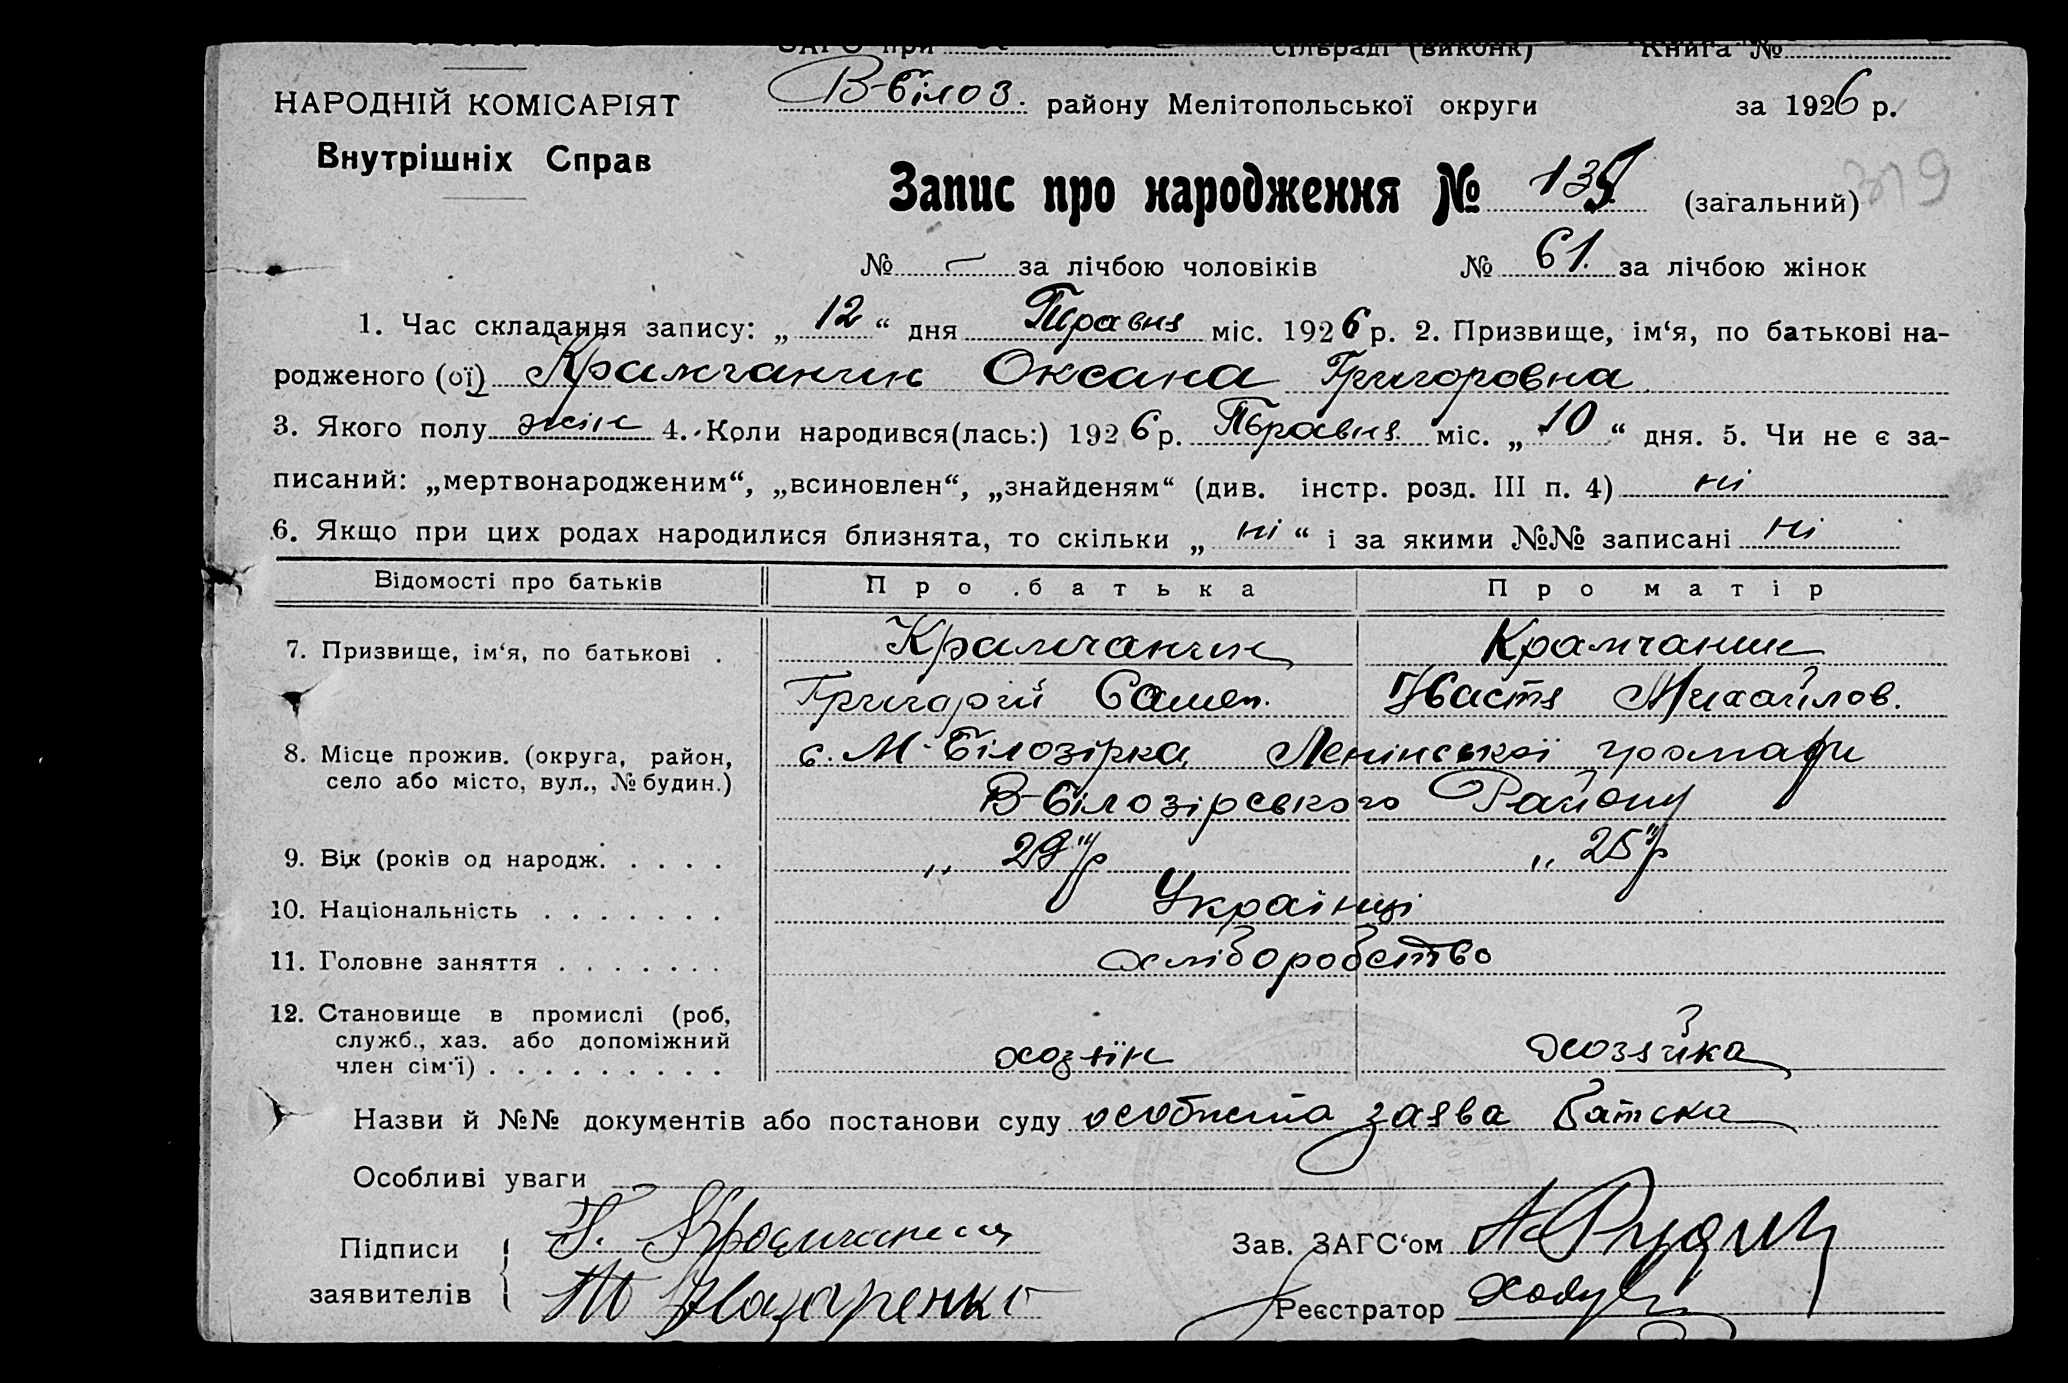 ЗАГС при сільраді (виконк) Книга №
НАРОДНІЙ КОМІСАРІЯТ
Внутрішніх Справ
В-Білоз. району Мелітопольської округи за 1926 р.
Запис про народження № (загальний) 319
№ — за лічбою чоловіків № 61. за лічбою жінок
1. Час складання запису: „ 12 “ дня Травня міс. 1926 р. 2. Призвище, ім‘я, по батькові на-
родженого (ої) Крамчанин Оксана Григоровна
3. Якого полу жін 4. Коли народився(лась:) 1926 р. Травня міс. „ 10 “ дня. 5. Чи не є за-
писаний: „мертвонародженим“, „всиновлен“, „знайденям“ (див. інстр. розд. III п. 4) ні
6. Якщо при цих родах народилися близнята, то скільки „ ні “ і за якими №№ записані ні
Відомості про батьків Про батька Про матір
7. Призвище, ім‘я, по батькові . Крамчанин Крамчанин
Григорій Самен. Настя Михайлов.
8. Місце прожив. (округа, район,
село або місто, вул., № будин.)
с. М-Білозірка Ленінської громади
В-Білозірського Району
9. Вік (років од народж. . . . . „ 29 р „ 25 р
10. Національність . . . . . . . Українці
11. Головне заняття . . . . . . . хліборобство
12. Становище в промислі (роб,
служб., хаз. або допоміжний
член сім‘ї) . . . . . . . . . хозяїн хозяйка
Назви й №№ документів або постанови суду особиста заява батька
Особливі уваги
Підписи
заявителів
Г. Крамчанин
Назаренко
Зав. ЗАГС‘ом
Реєстратор